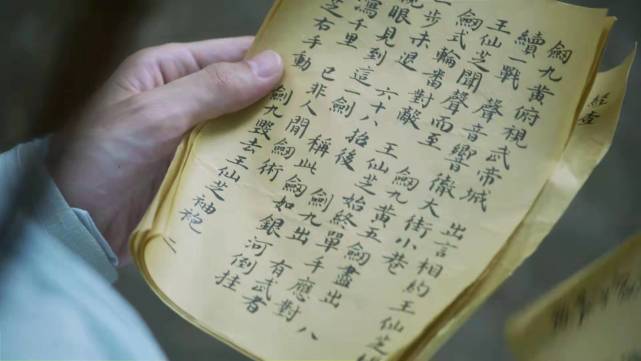 經查
劍九黃俯視武帝城 出言相約王仙芝
續一戰 聲音響徹大街小巷
王仙芝聞聲而至 劍九黃五劍盡出
劍式輪番對敵 王仙芝始終單手應對 八
步未退 六十八招後 劍九出 有武者
眼見到這一劍 稱此劍如銀河倒掛
瀉千里 已非人間劍術
芝右手動 劍九毀去王仙芝袖袍 二